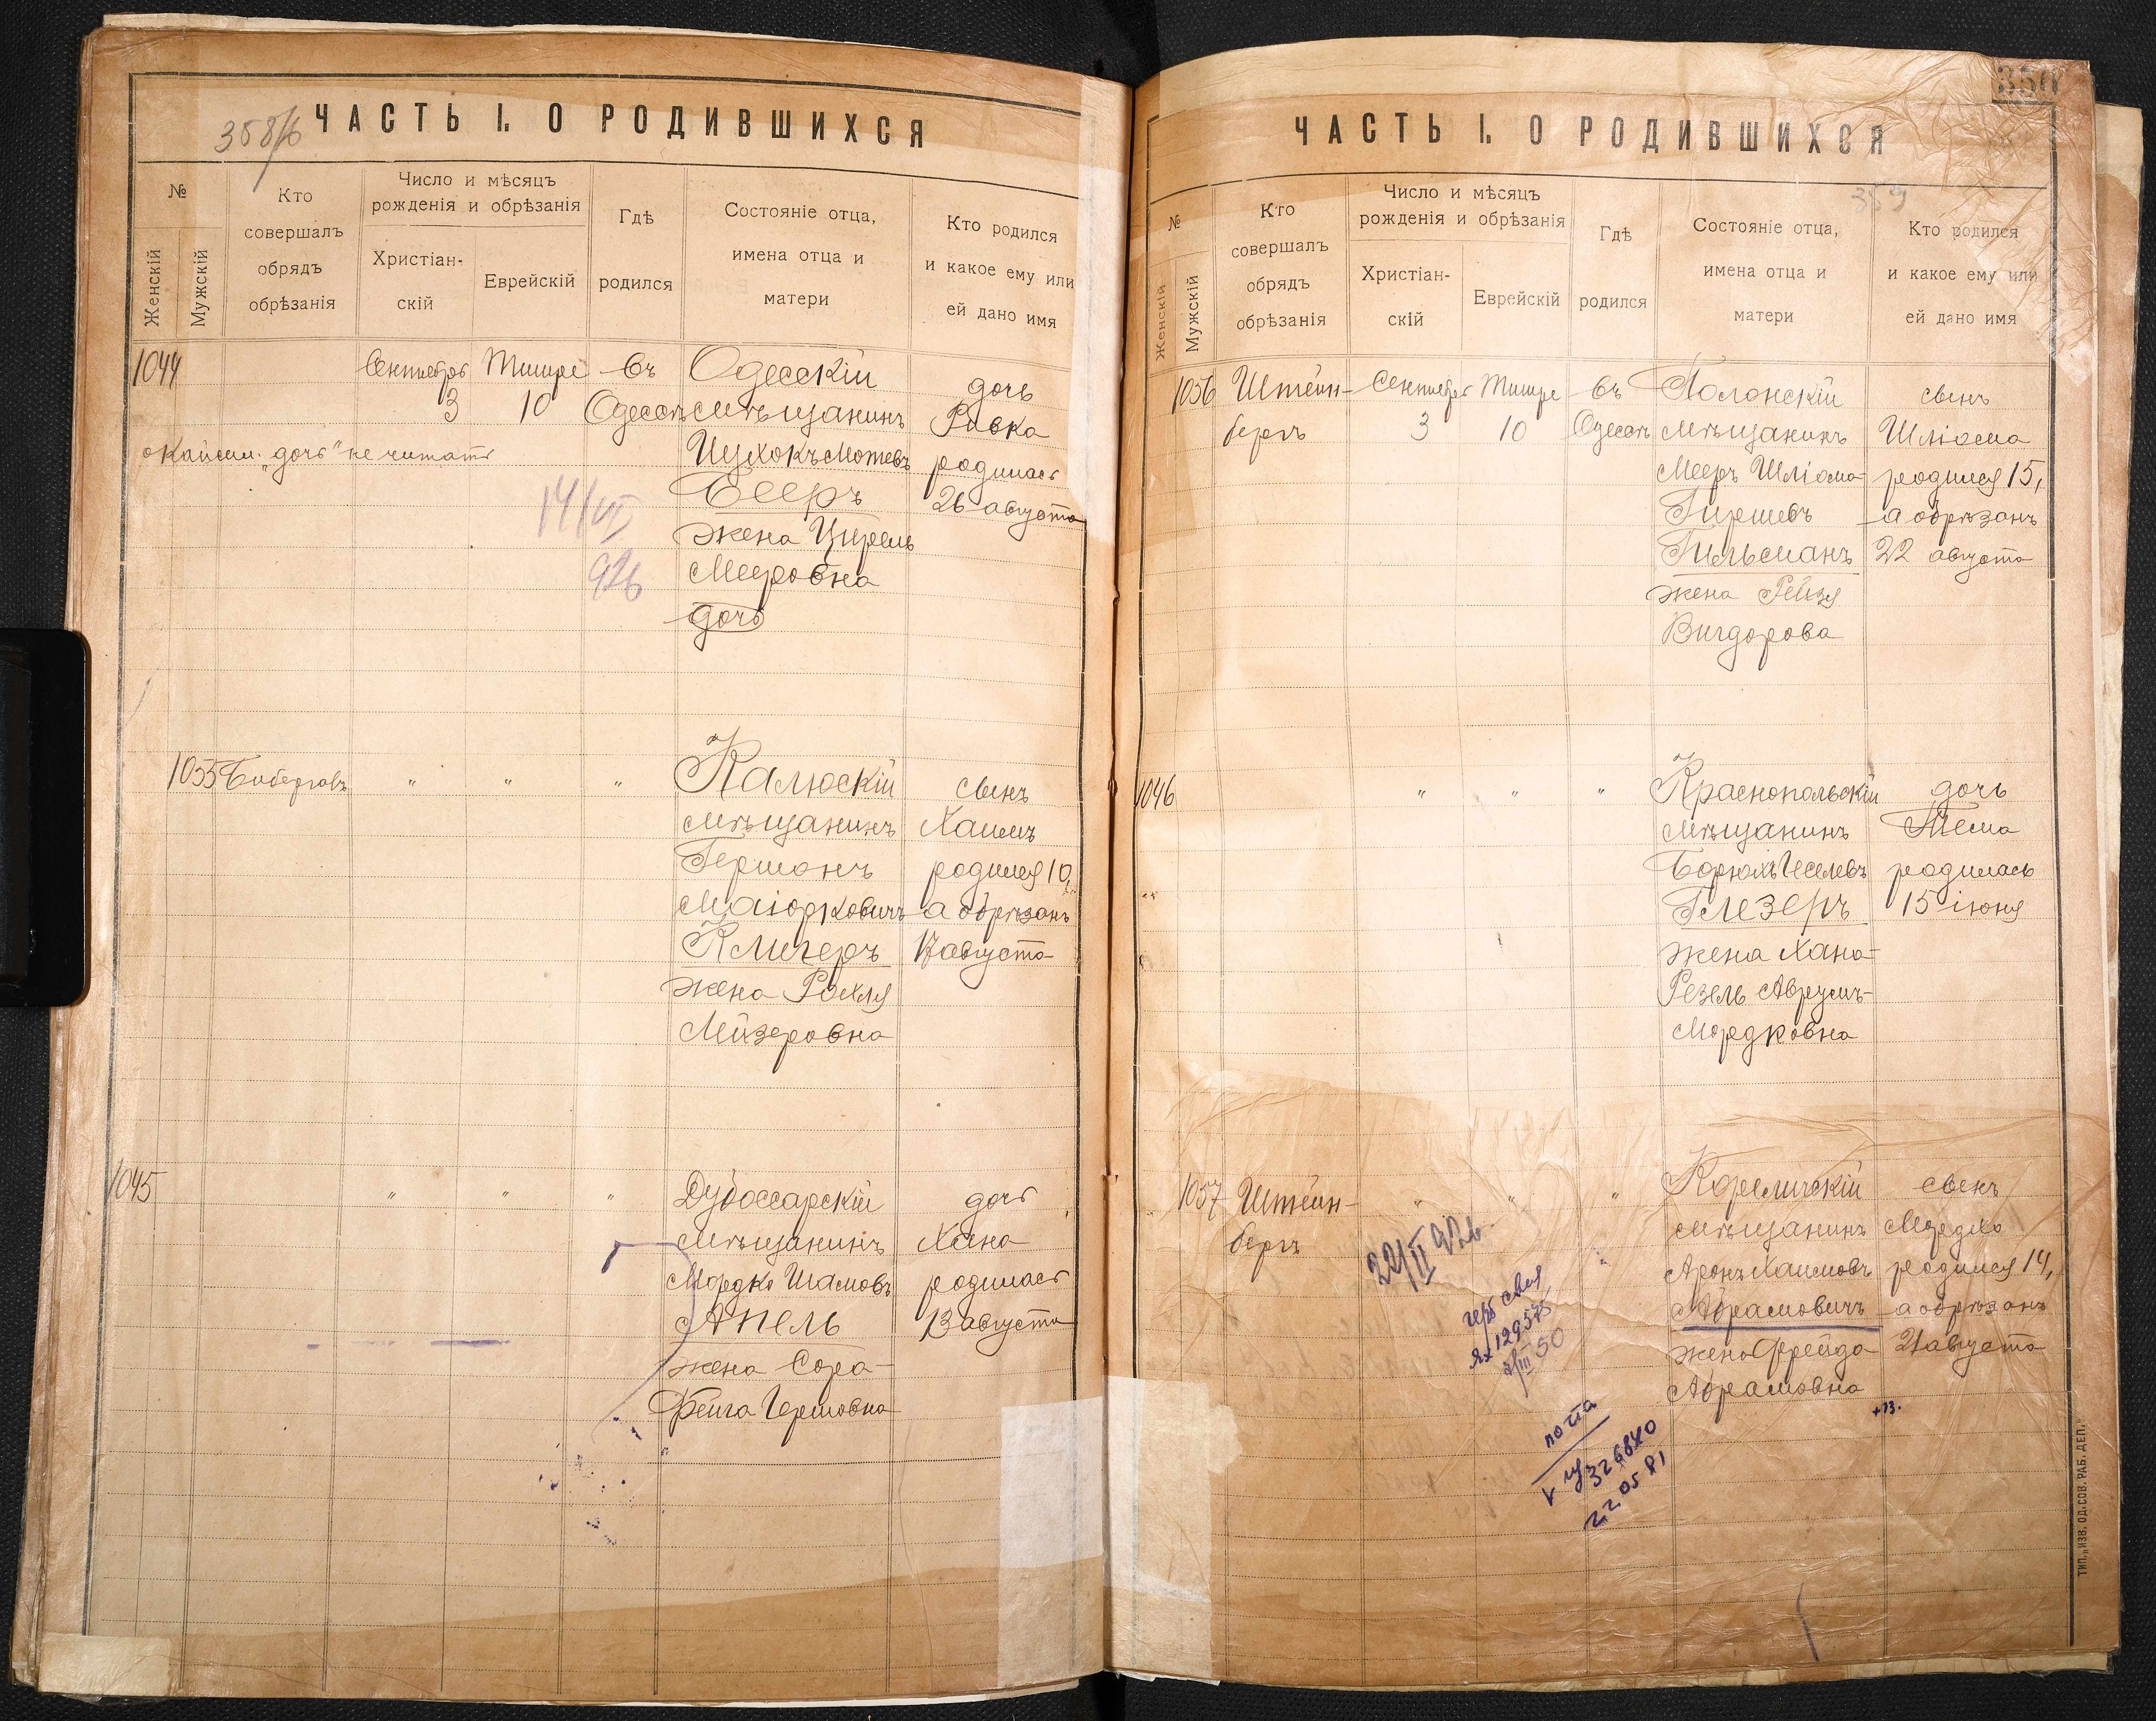 358/б
ЧАСТЬ I. О РОДИВШИХСЯ
№
Женскій
Мужскій
Кто
совершалъ
обрядъ
обрѣзанія
Число и мѣсяцъ
рожденія и обрѣзанія
Христіан-
скій
Еврейскій
Гдѣ
родился
Состояніе отца,
имена отца и
матери
Кто родился
и какое ему или
ей дано имя
1044
Сентября
3
Тишре
10
въ
Одессѣ
Одесскій
мѣщанинъ
Ицхокъ Мотевъ
Бееръ
жена Цирель
Мееровна
дочь
дочь
Ривка
родилась
26 августа
окайм. "дочь" не читать
14/VI
926
1055
" " "
Калюскій
мѣщанинъ
Германъ
Маіорковичъ
Клигеръ
жена Рохля
Лейзеровна
сынъ
Хаимъ
родился 10,
а обрѣзанъ
17 августа
1045
" " "
Дубоссарскій
мѣщанинъ
Мордко Шамовъ
Апель
жена Сора-
Фейга Гершовна
дочь
Хана
родилась
13 августа
359
ЧАСТЬ I. О РОДИВШИХСЯ
№
Женскій
Мужскій
Кто
совершалъ
обрядъ
обрѣзанія
Число и мѣсяцъ
рожденія и обрѣзанія
Христіан-
скій
Еврейскій
Гдѣ
родился
Состояніе отца,
имена отца и
матери
Кто родился
и какое ему или
ей дано имя
1056
Штейн-
бергъ
Сентября
3
Тишре
10
въ
Одессѣ
Полонскій
мѣщанинъ
Мееръ Шліома-
Гиршевъ
Гильманъ
жена Рейзя
Вигдорова
сынъ
Шліома
родился 15,
а обрѣзанъ
22 августа
1046
" " "
Краснопольскій
мѣщанинъ
Борухъ Іоселевъ
Глезеръ
жена Хана-
Резель Аврумъ-
Мордковна
дочь
родилась
15 іюня
1057
Штейн-
бергъ
" " "
Кореличскій
мѣщанинъ
Аронъ Хаимовъ
Абрамовичъ
жена Фрейда
Абрамовна
сынъ
Мордко
родился 14,
а обрѣзанъ
21 августа
22/II 926
129575
50
почта
326840
22 05 81
ТИП. „ИЗВ. ОД. СОВ. РАБ. ДЕП."